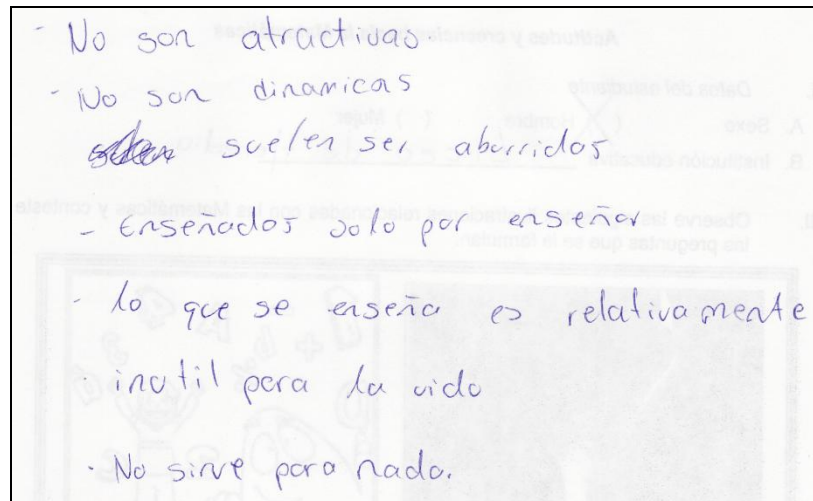 - No son atractivas
- No son dinamicas
suelen ser aburridos
- Enseñados solo por enseñar
- lo que se enseña es relativamente
- inutil para la vida
- No sirve para nada.